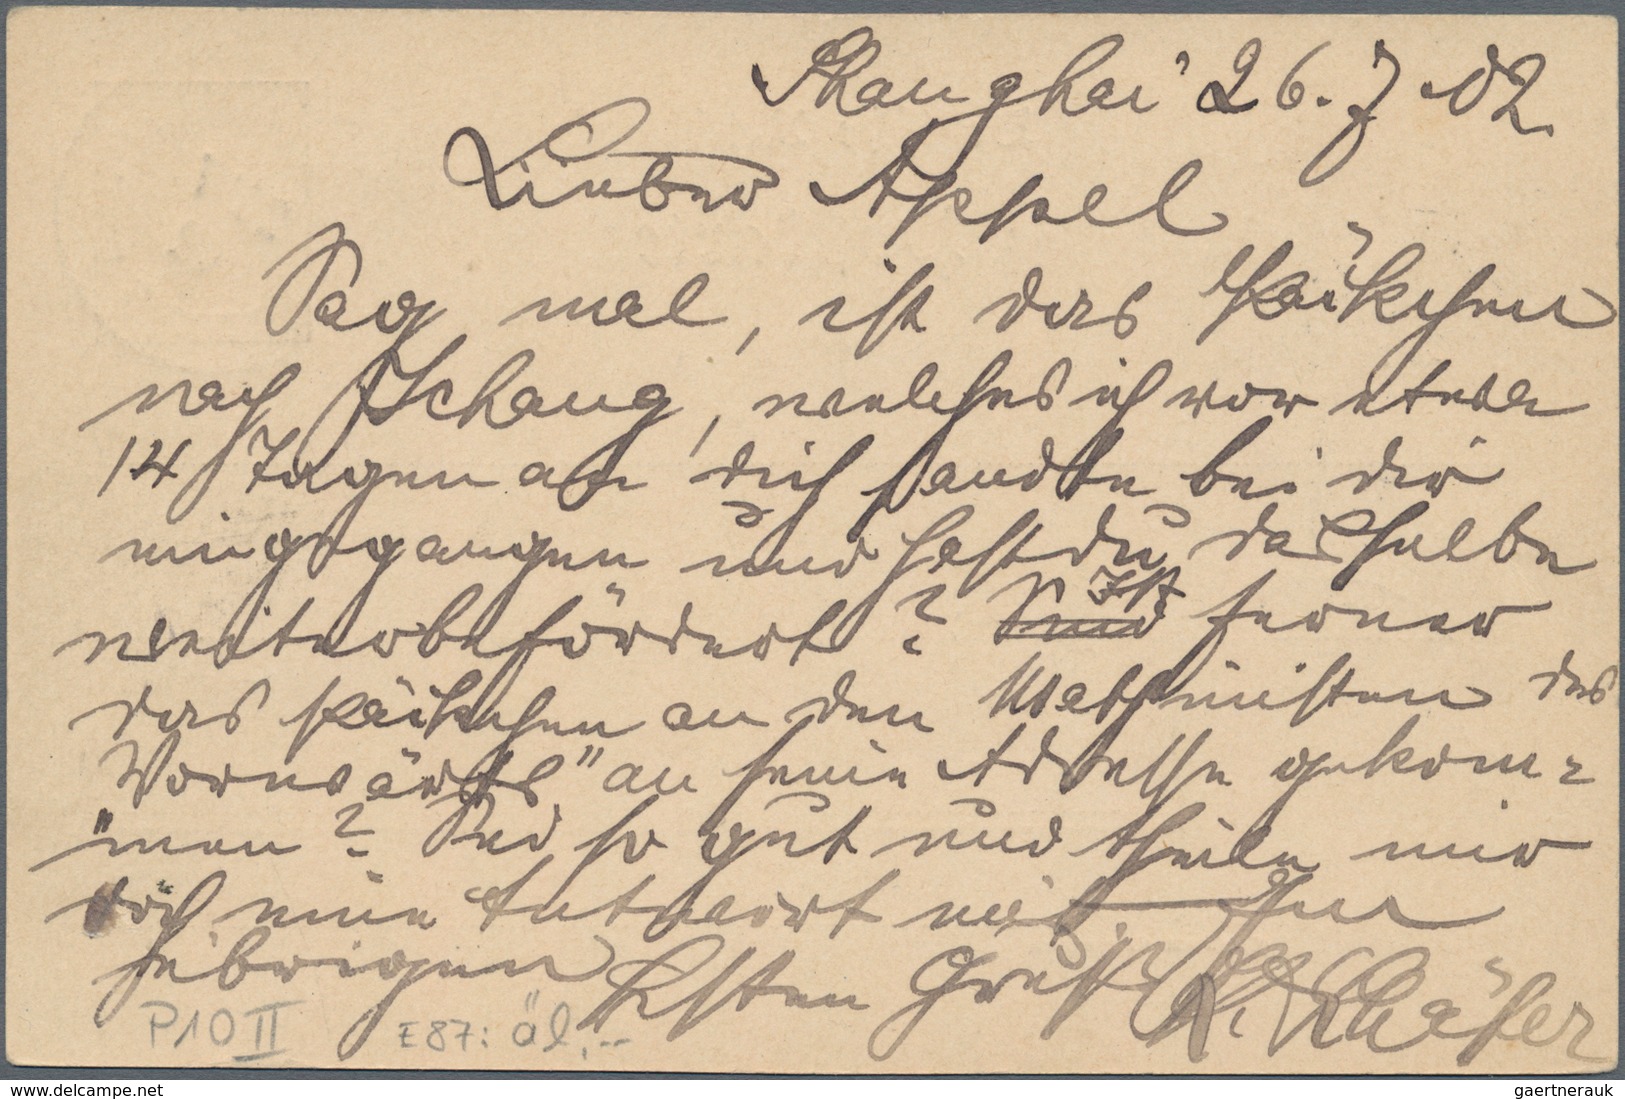 Shanghai 26.7.02.
Lieber Appel
Sag mal, ist das Päckchen
nach Itchang, welches ich vor etwa
14 Tagen an dich sandte bei dir
eingegangen und hast du dasselbe
weiterbefördert? Sind Ist ferner
das Päckchen an den Maschinisten des
Vorwärts" an seine Adresse gekom-
men? Sei so gut und theile mir
doch eine Antwort mit. Im
übrigen besten Gruß K. Schäfer
P10 II E87: äl,--
www.delcampe.net
gaertnerauk